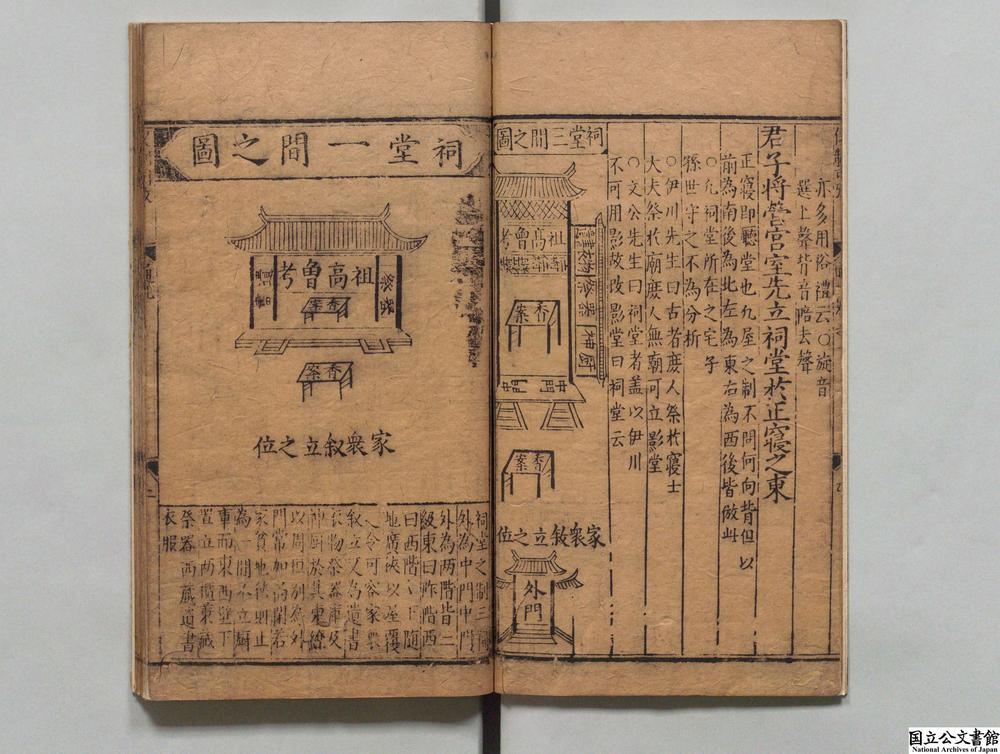 亦多用俗禮云○旋音
選上聲背音倍去聲
君子將營宮室先立祠堂於正寢之東
正寢即聽堂也九屋之制不問何向背但以
前為南後為北左為東右為西後皆倣此
○凡祠堂所在之宅子
孫世守之不為分析
○伊川先生曰古者庶人祭於寢士
大夫祭於廟庶人無廟可立影堂
○文公先生曰祠堂者盖以伊川
不可用影故改影堂曰祠堂云
祠堂三間之圖
祖高曾考
祭器
神厨
香案
香案
家衆敘立之位
外門
祠堂一間之圖
祖高曾考
遺書
祭器
香案
香案
家衆叙立之位
祠堂之制三間
外為中門中門
外為兩階皆三
級東曰阼階西
曰西階階下隨
地廣狹以屋覆
之令可容家衆
叙立又為遺書
衣物祭器庫及
神厨於其東繚
以周垣別為外
門常加扃閉若
家貧地狹則止
為一間不立厨
庫而東西壁下
置立兩櫃東藏
祭器西藏遺書
衣服
国立公文書館
National Archives of Japan